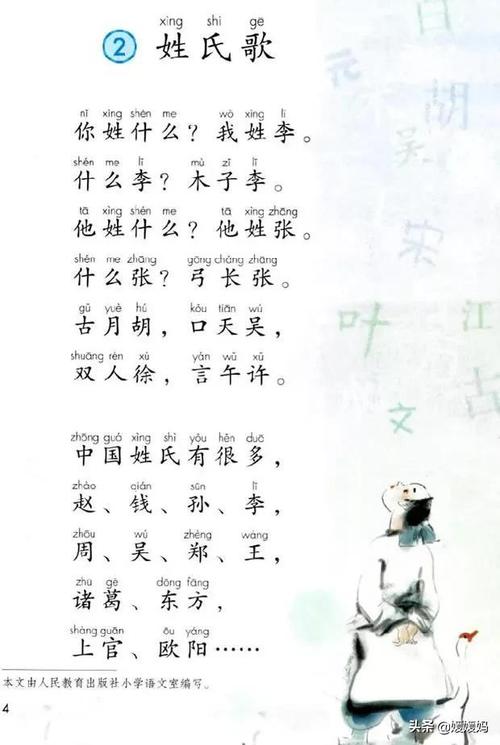 xìng shì gē
2 姓氏歌
nǐ xìng shén me wǒ xìng lǐ
你姓什么？我姓李。
shén me lǐ mù zǐ lǐ
什么李？木子李。
tā xìng shén me tā xìng zhāng
他姓什么？他姓张。
shén me zhāng gōng cháng zhāng
什么张？弓长张。
gǔ yuè hú kǒu tiān wú
古月胡，口天吴，
shuāng rén xú yán wǔ xǔ
双人徐，言午许。
zhōng guó xìng shì yǒu hěn duō
中国姓氏有很多，
zhào qián sūn lǐ
赵、钱、孙、李，
zhōu wú zhèng wáng
周、吴、郑、王，
zhū gě dōng fāng
诸葛、东方，
shàng guān ōu yáng
上官、欧阳……
本文由人民教育出版社小学语文室编写。
4
元
胡
吴
宋
叶
江
古
文
头条@媛媛妈